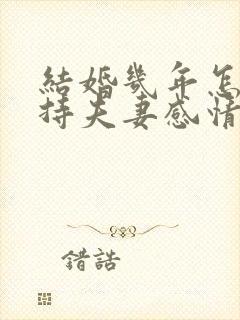 結婚幾年怎
持夫妻感情
錯誥